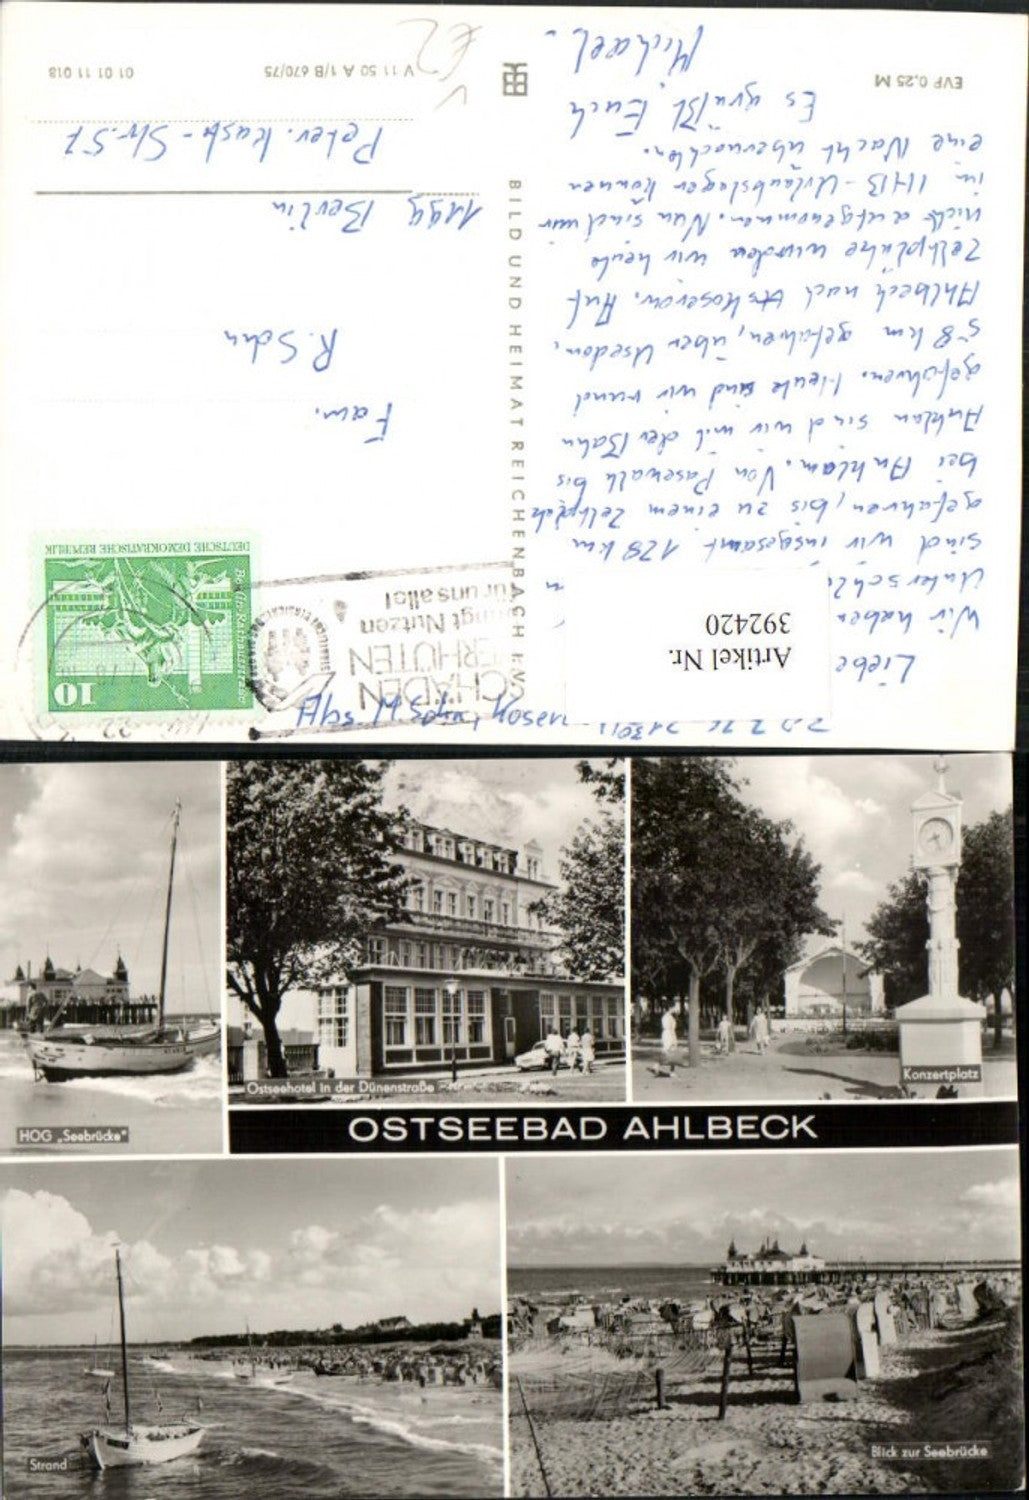 Liebe
Wir haben
Untersch
sind wir insgesamt 128 km
gefahren, bis zu einem Zeltplatz
bei Anklam. Von Pasewalk bis
Anklam sind wir mit der Bahn
gefahren. Heute sind wir rund
58 km gefahren, über Usedom,
Ahlbeck nach Koserow. Auf
Zeltplätze wurden wir heute
nicht aufgenommen. Nun sind wir
im IHB-Urlaubslager können
eine Nacht übernachten.
Es grüßt Euch
Michael.
EVP 0,25 M
Artikel Nr.
392420
BILD UND HEIMAT REICHENBACH
SCHÄDEN
VERHÜTEN
bringt Nutzen
für uns alle!
10
DEUTSCHE DEMOKRATISCHE REPUBLIK
Fam.
R. Sahn
1199 Berlin
Peter-Kast-Str. 57
V 11 50 A 1/B 670/75
01 01 11 018
£2
HOG „Seebrücke"
Ostseehotel in der Dünenstraße
Konzertplatz
OSTSEEBAD AHLBECK
Strand
Blick zur Seebrücke